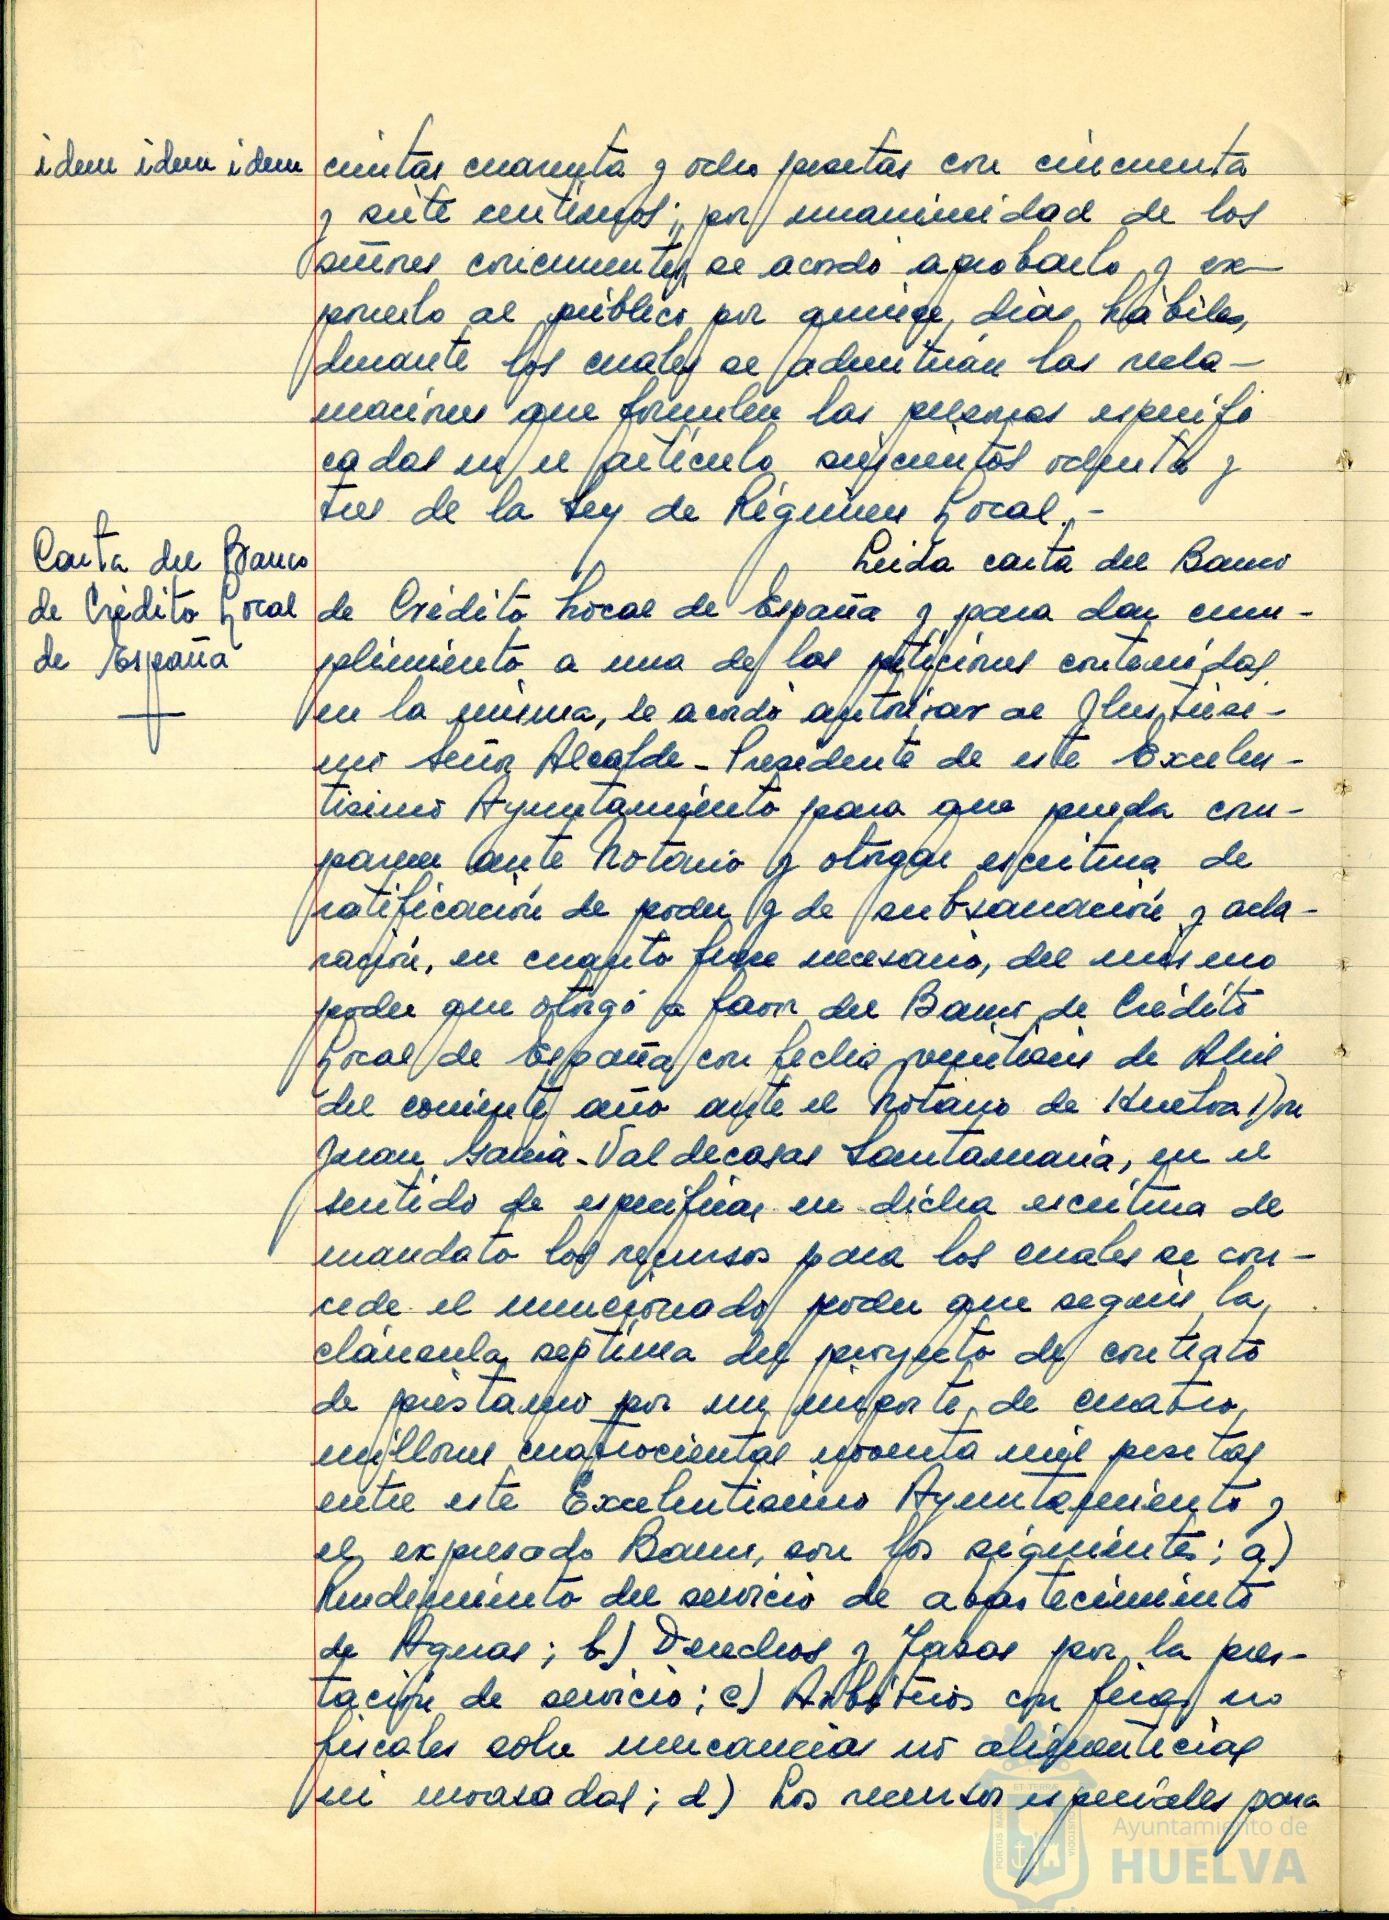 idem idem idem
cientas cuarenta y ocho pesetas con cincuenta
y siete centimos; por unanimidad de los
señores concurrentes, se acordó aprobarlo y ex-
ponerlo al público por quince dias hábiles,
durante los cuales se admitirán las recla-
maciones que formulen las personas especifi
cadas en el artículo seiscientos ochenta y
tres de la Ley de Régimen Local.-
Carta del Banco
de Crédito Local
de España
Leida carta del Banco
de Crédito Local de España y para dar cum-
plimiento a una de las peticiones contenidas
en la misma, se acordó autorizar al Ilustrisi-
mo Señor Alcalde-Presidente de este Excelen-
tisimo Ayuntamiento para que pueda com-
parecer ante Notario y otorgar escritura de
ratificación de poder y de subsanación y acla-
ración, en cuanto fuese necesario, del mismo
poder que otorgó a favor del Banco de Crédito
Local de España con fecha veintiseis de Abril
del corriente año ante el Notario de Huelva Don
Juan García-Valdecasas Santamaría, en el
sentido de especificar en dicha escritura de
mandato los recursos para los cuales se con-
cede el mencionado poder que según la
cláusula septima del proyecto de contrato
de préstamo por un importe de cuatro
millones cuatrocientas noventa mil pesetas
entre este Excelentisimo Ayuntamiento y
el expresado Banco, son los siguientes; a)
Rendimiento del servicio de abastecimiento
de Aguas; b) Derechos y Tasas por la pres-
tación de servicio; c) Arbitrios con fines no
fiscales sobre mercancias no alimenticias
ni envasadas; d) Los recursos especiales para
ET TERRÆ
PORTUS MARIS
CUSTODIA
Ayuntamiento de
HUELVA